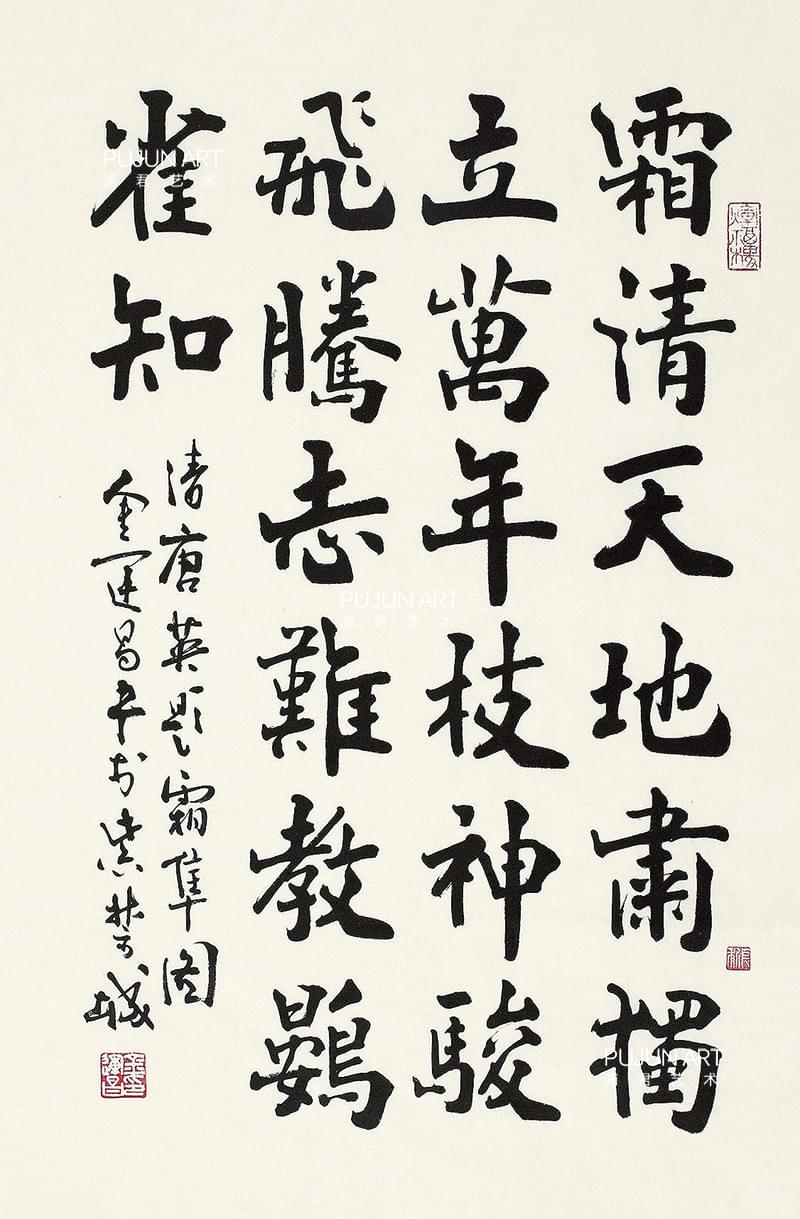 霜清天地肅獨
立萬年枝神駿
飛騰志難教鷃
雀知
清唐英題霜隼圖
金運昌書於紫禁城
PUJUN ART
君艺术
PUJUN ART
君艺术
PUJUN ART
君艺术